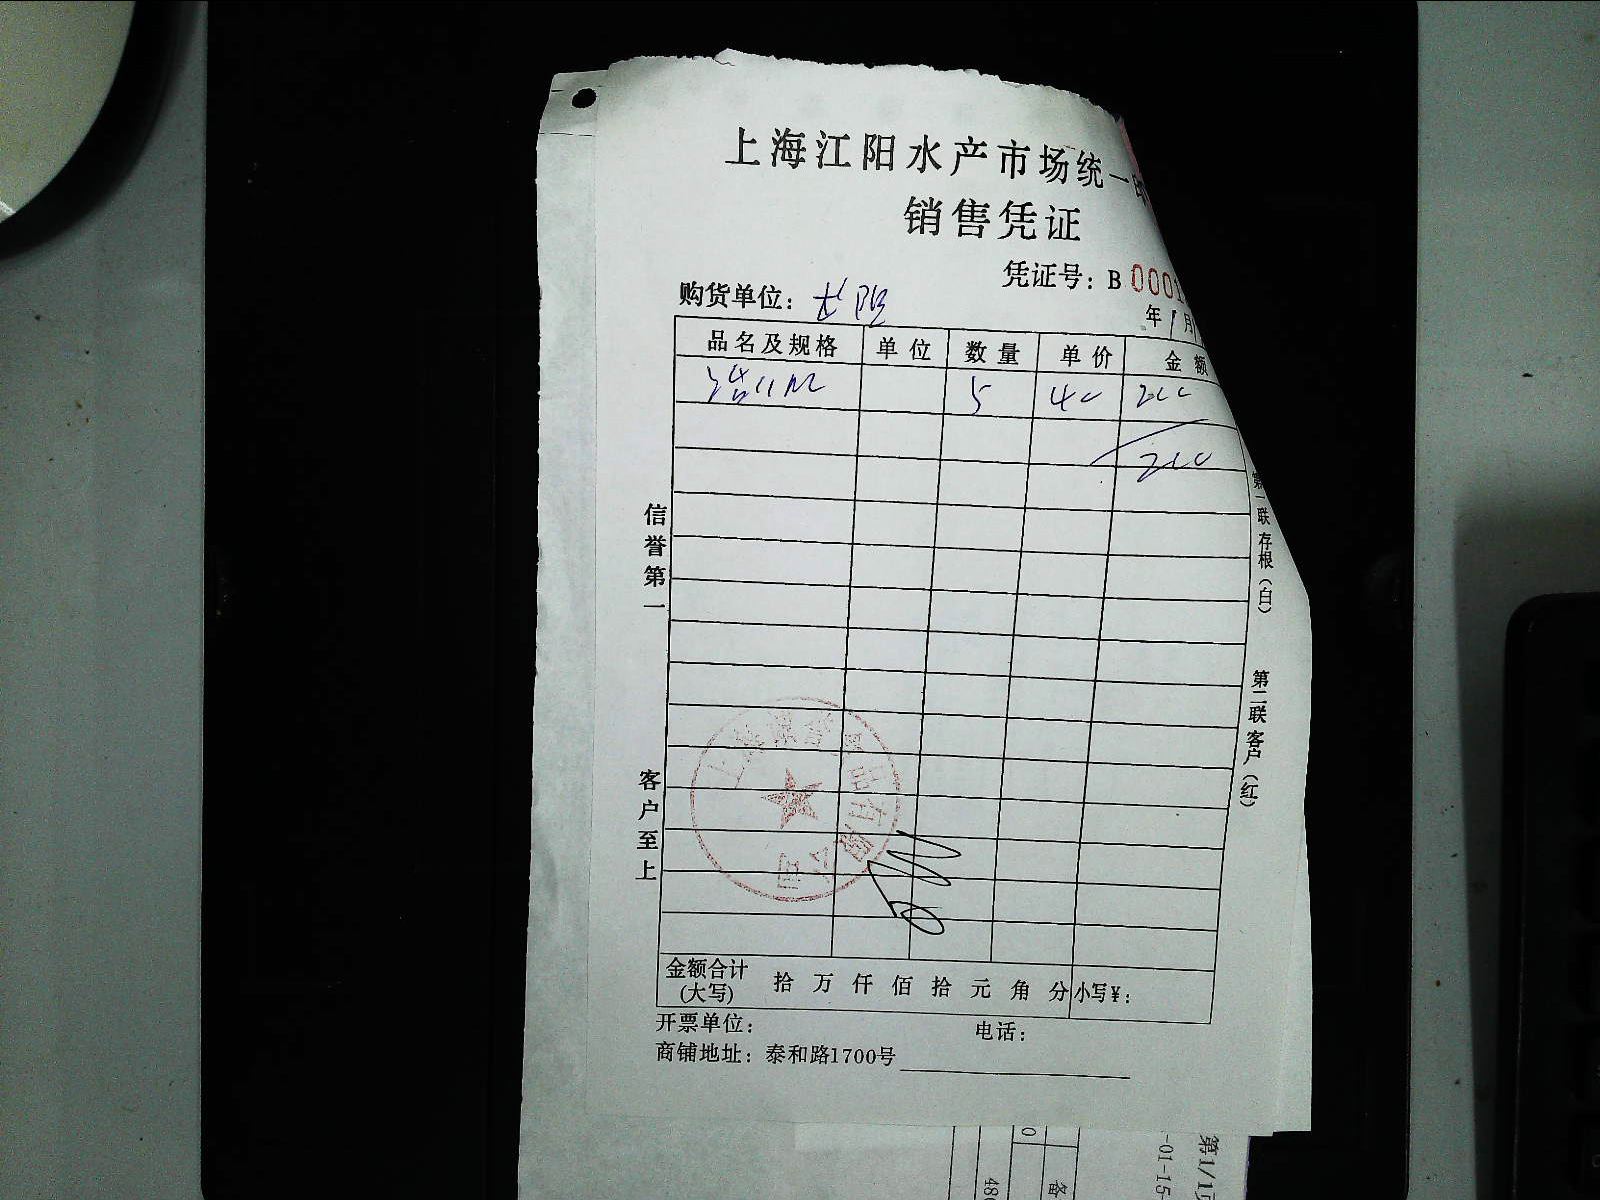 上海江阳水产市场统一印
销售凭证
凭证号：B 0001
购货单位：
年1月
品名及规格 单位 数量 单价 金额
5 40 200
200
信誉第一
客户至上
第一联 存根（白）
第二联 客户（红）
上海 品有限公司
金额合计(大写) 拾 万 仟 佰 拾 元 角 分 小写￥：
开票单位： 电话：
商铺地址：泰和路1700号
第1/1页
-01-15
备
0
480